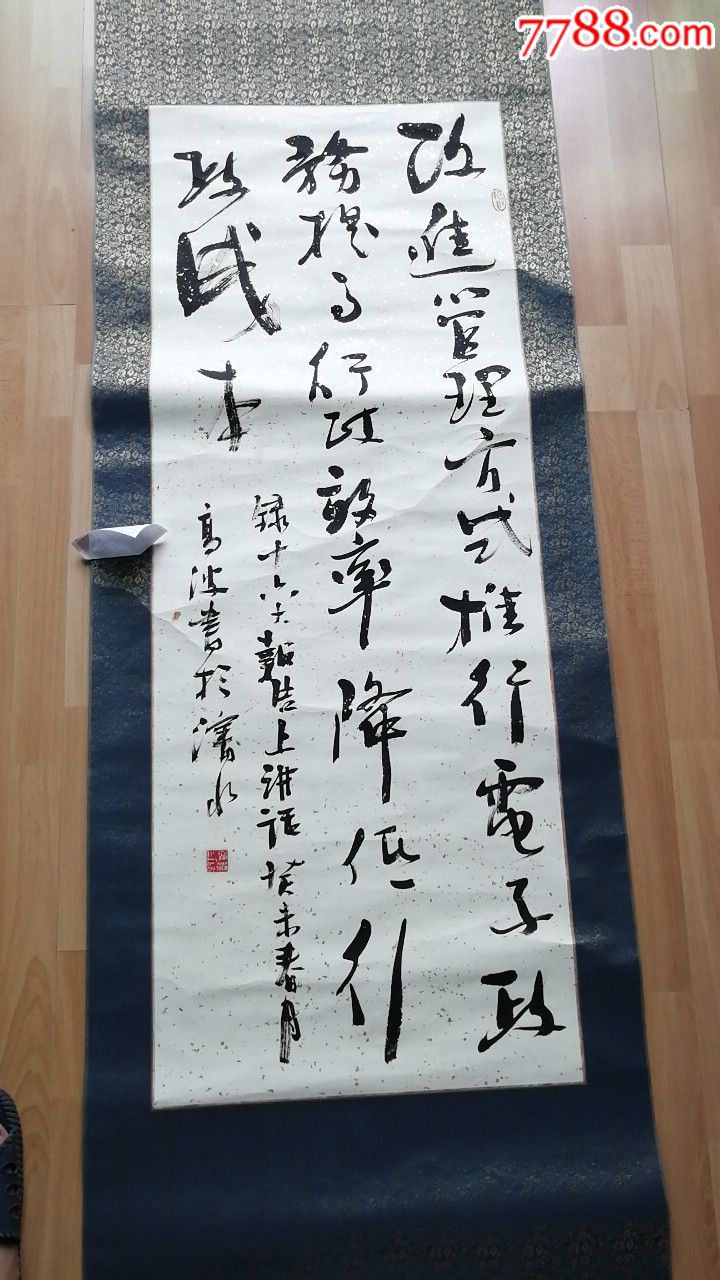 7788.com
改進管理方式推行電子政
務提高行政效率降低行
政成本
録十六大報告上讲话癸未春月
高波書於濱水